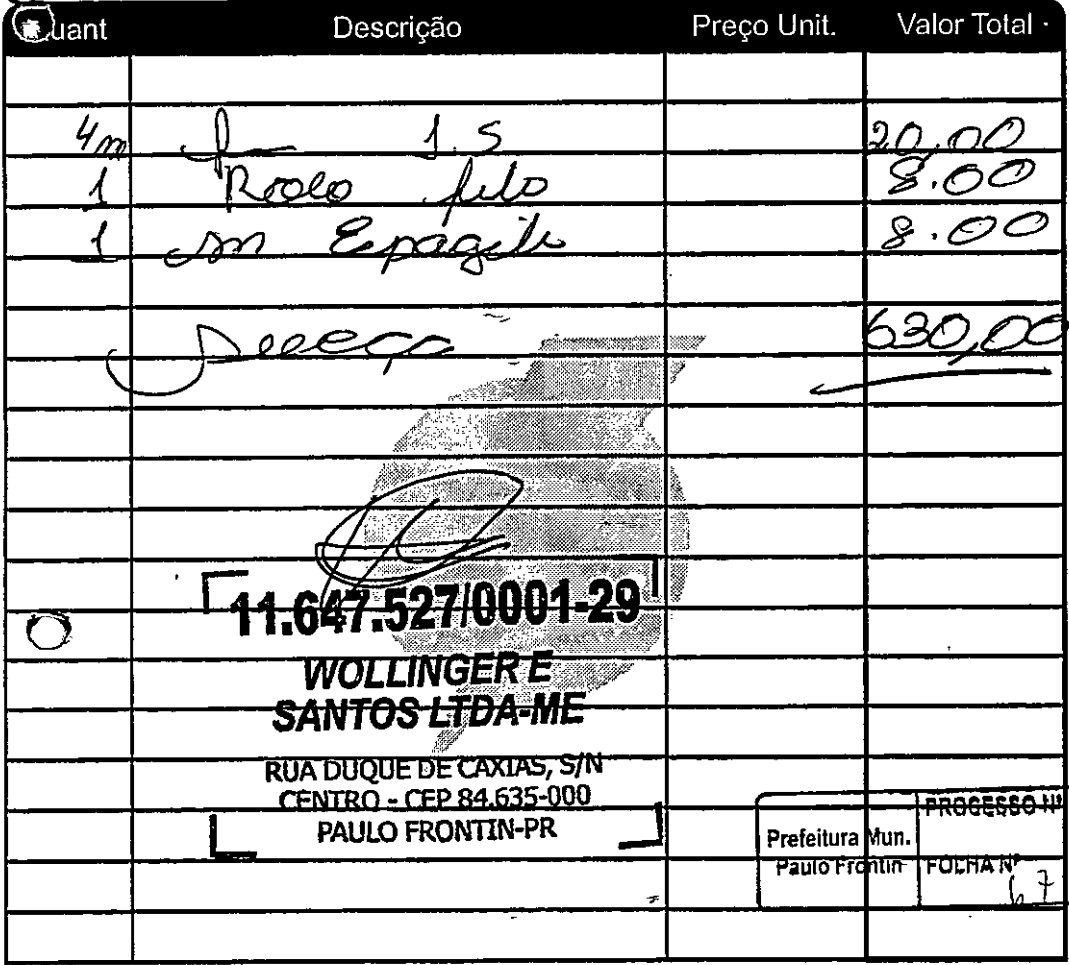 Quant Descrição Preço Unit. Valor Total
4m 1.5 20,00
1 Rolo fita 8.00
1 8.00
630,00
11.647.527/0001-29
WOLLINGER E
SANTOS LTDA-ME
RUA DUQUE DE CAXIAS, S/N
CENTRO - CEP 84.635-000
PAULO FRONTIN-PR
PROCESSO Nº
Prefeitura Mun.
Paulo Frontin FOLHA Nº
67